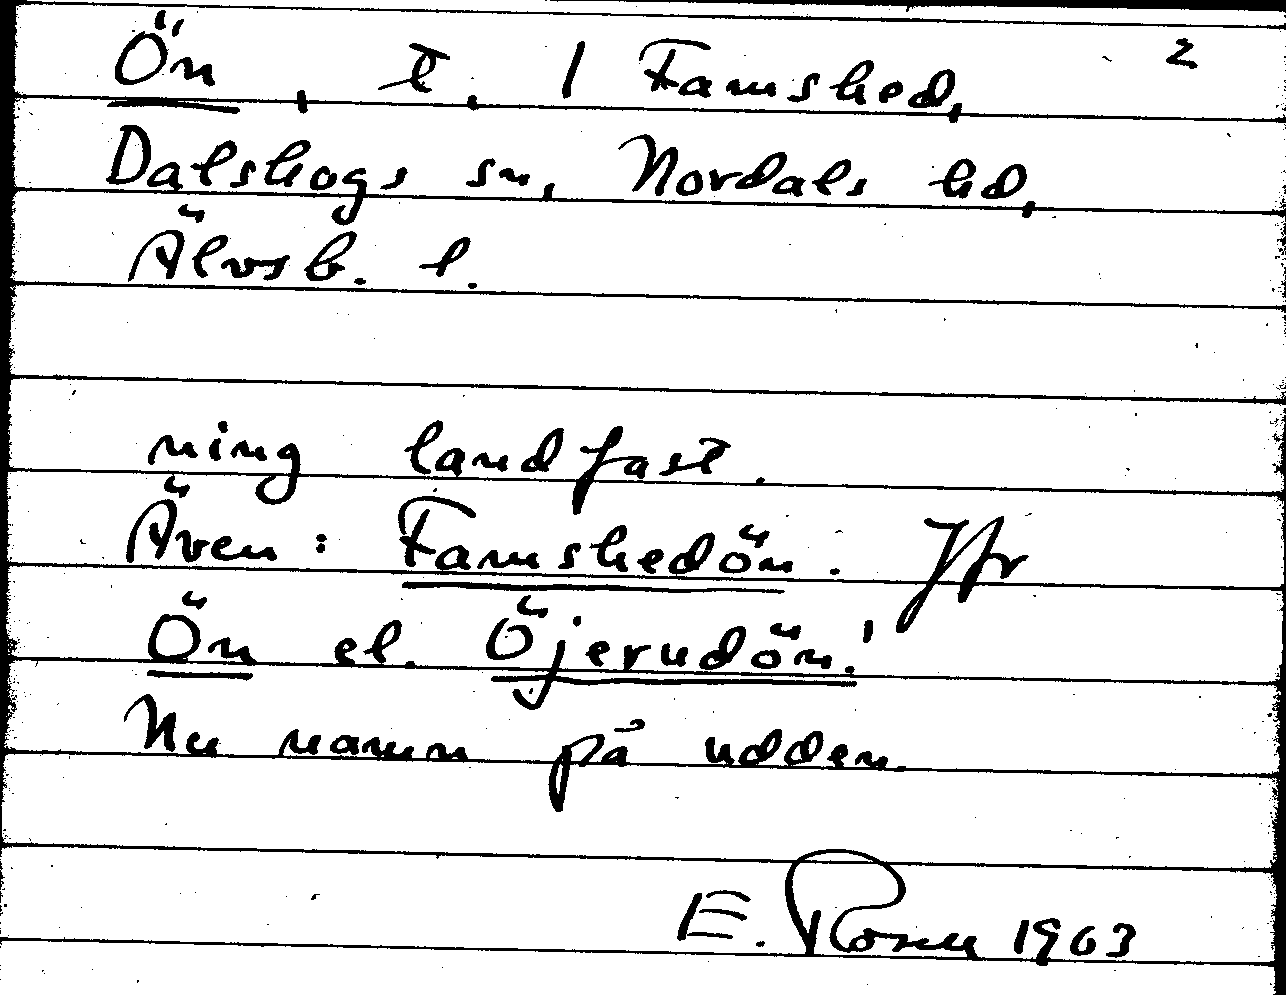 2
Ön, t. 1 Famshed,
Dalskogs sn, Nordals hd,
Älvsb. l.
ning landfast.
Även: Famshedön. Jfr
Ön el. Öjerudön!
Nu namn på udden.
E. Rosen 1903